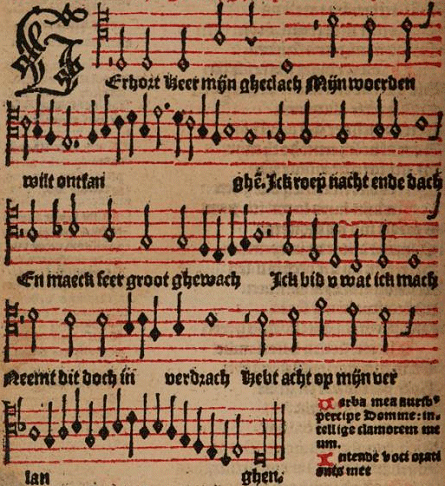 Erhort Heer mijn gheclach Mijn woerden
wilt ontfan ghē. Ick roep nacht ende dach
En maeck seer groot ghewach Ick bid v wat ick mach
Neemt dit doch in verdrach Hebt acht op mijn ver
lan ghen.
Verba mea aurib⁹
percipe Domine: in-
tellige clamorem me
um.
Intende voci orati
onis mee